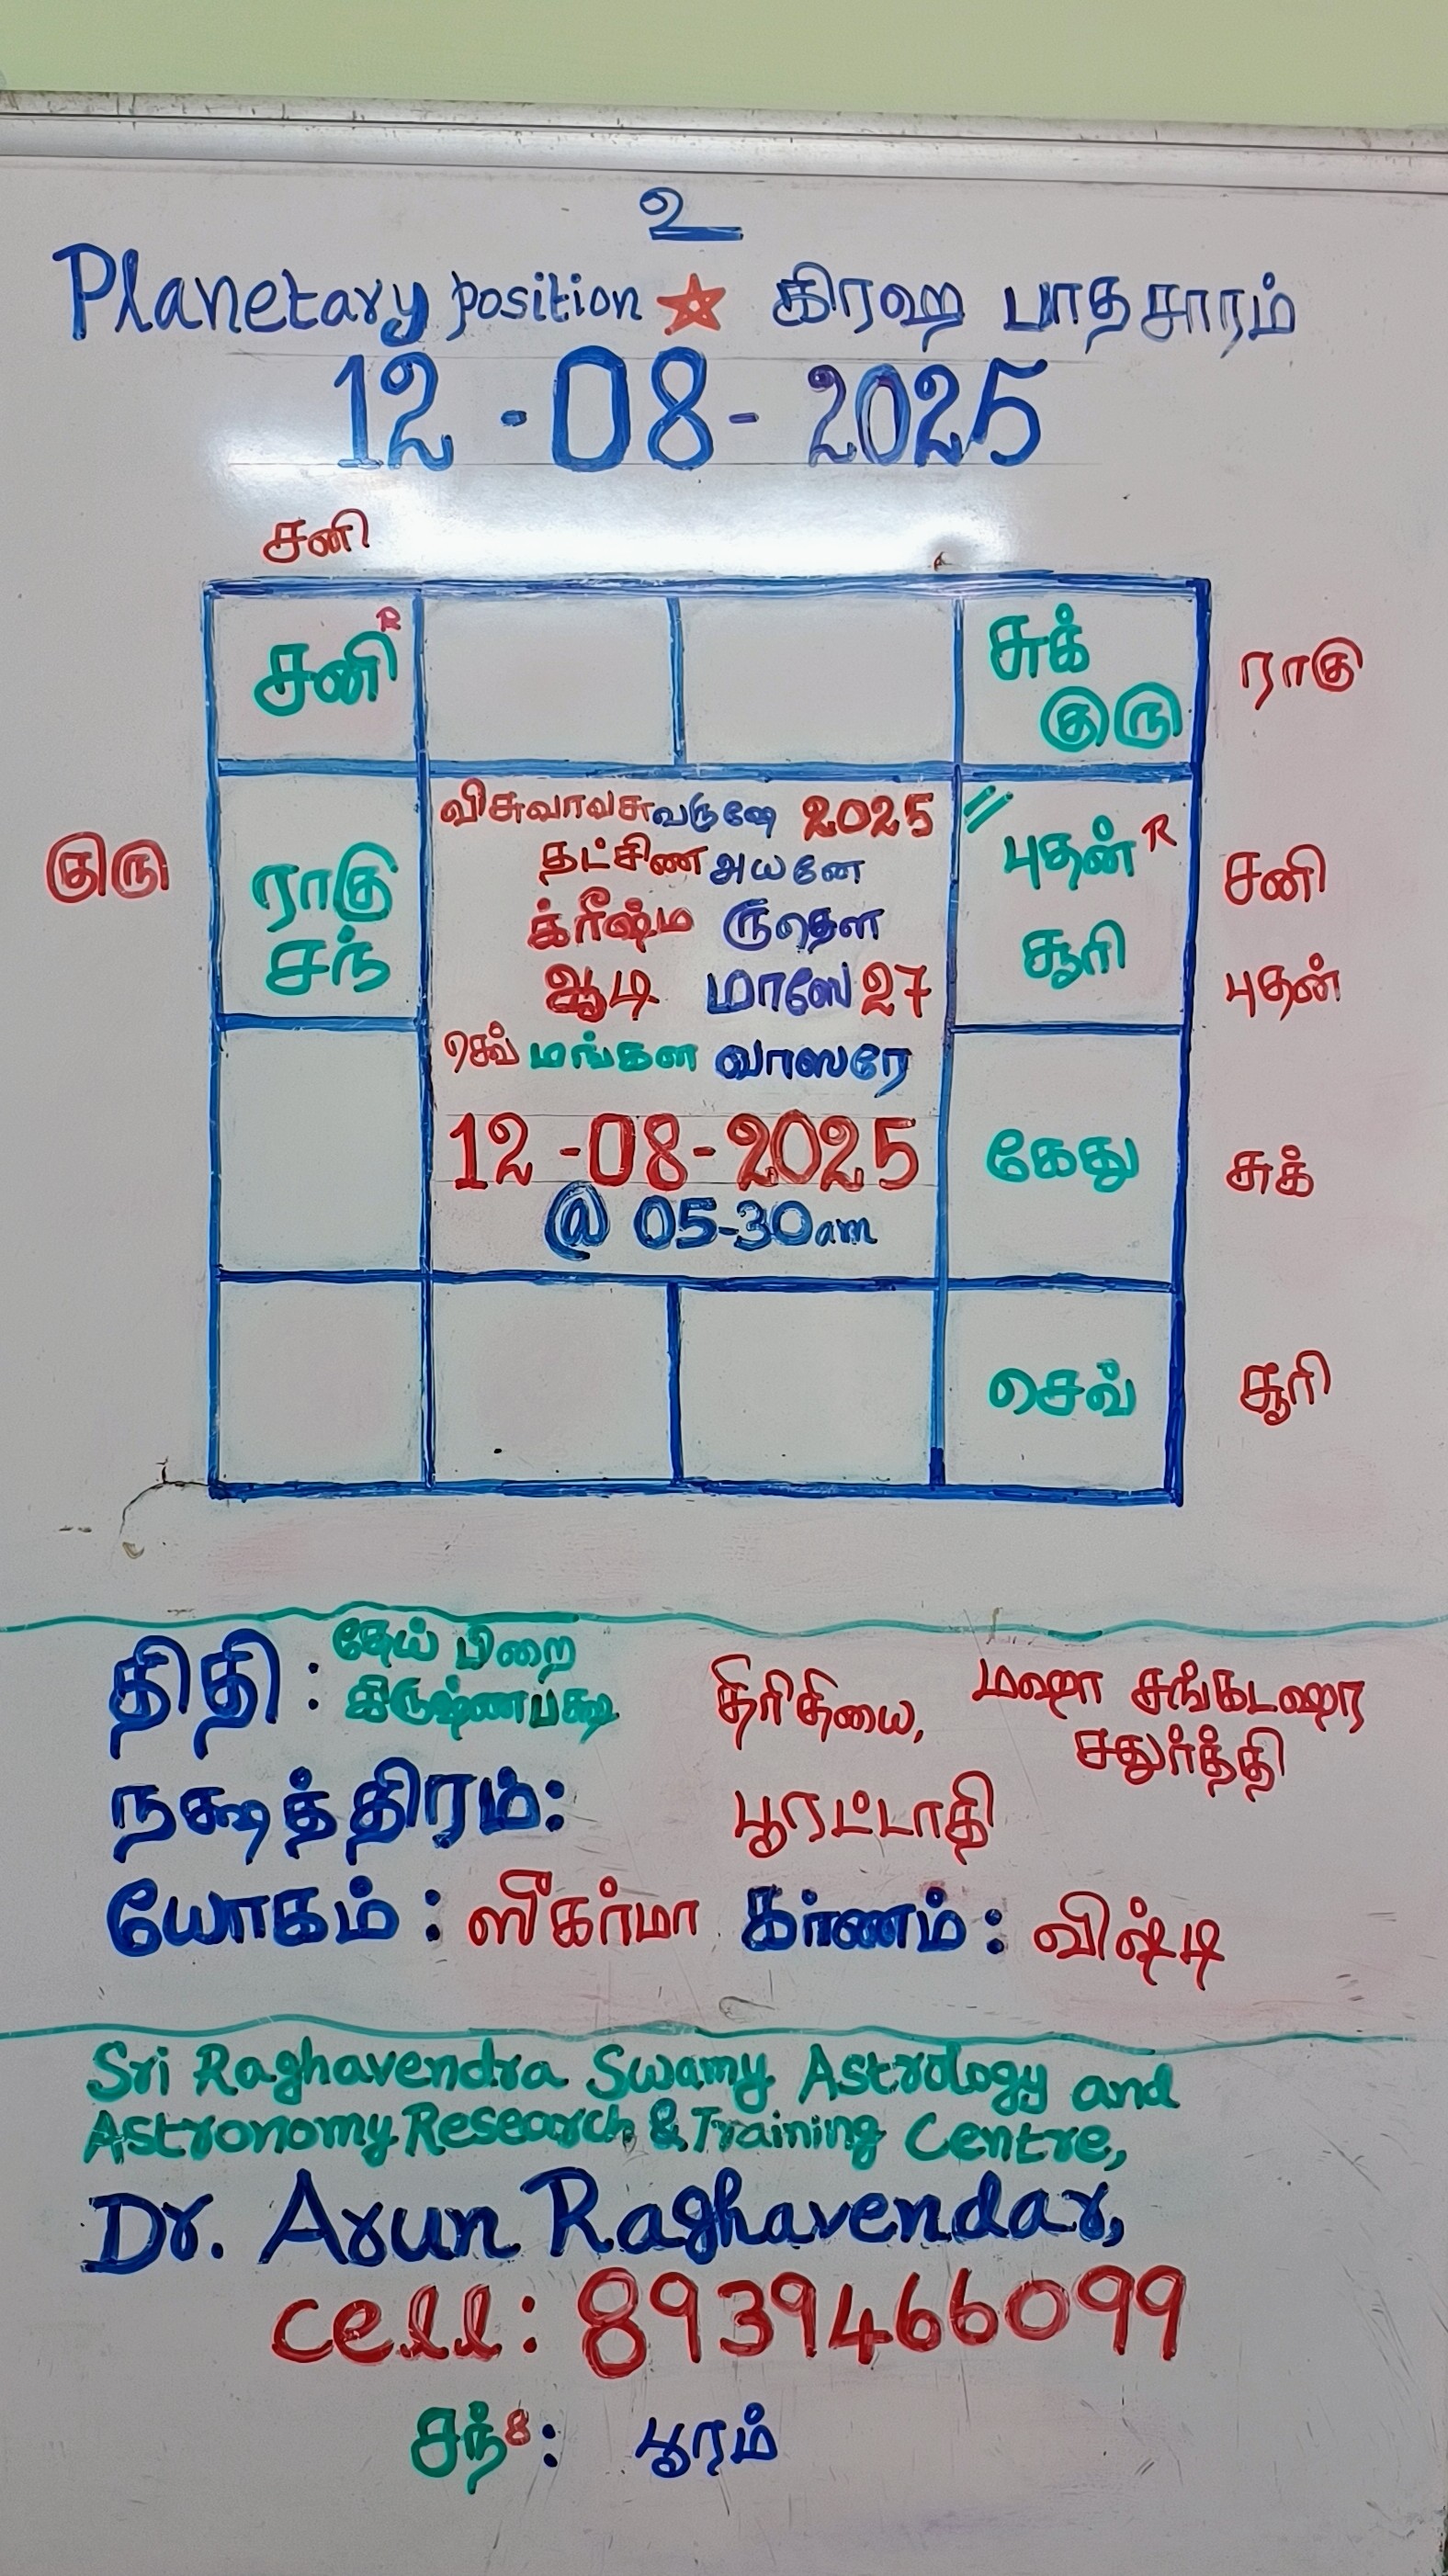 உ
Planetary position ☆ கிரஹ பாதசாரம்
12-08-2025
சனி
சனி R
சுக்
குரு
ராகு
குரு
ராகு
சந்
விசுவாவசுவருஷே 2025
தட்சிண அயனே
க்ரீஷ்ம ருதௌ
ஆடி மாஸே 27
செவ் மங்கள வாஸரே
12-08-2025
@ 05-30am
புதன் R
சூரி
சனி
புதன்
கேது
சுக்
செவ்
சூரி
திதி: தேய் பிறை
கிருஷ்ணபக்ஷ
திரிதியை, மஹா சங்கடஹர
சதுர்த்தி
நக்ஷத்திரம்: பூரட்டாதி
யோகம்: ஸீகர்மா கர்ணம்: விஷ்டி
Sri Raghavendra Swamy Astrology and
Astronomy Research & Training Centre,
Dr. Arun Raghavendar,
cell: 8939466099
சந் 8: பூரம்